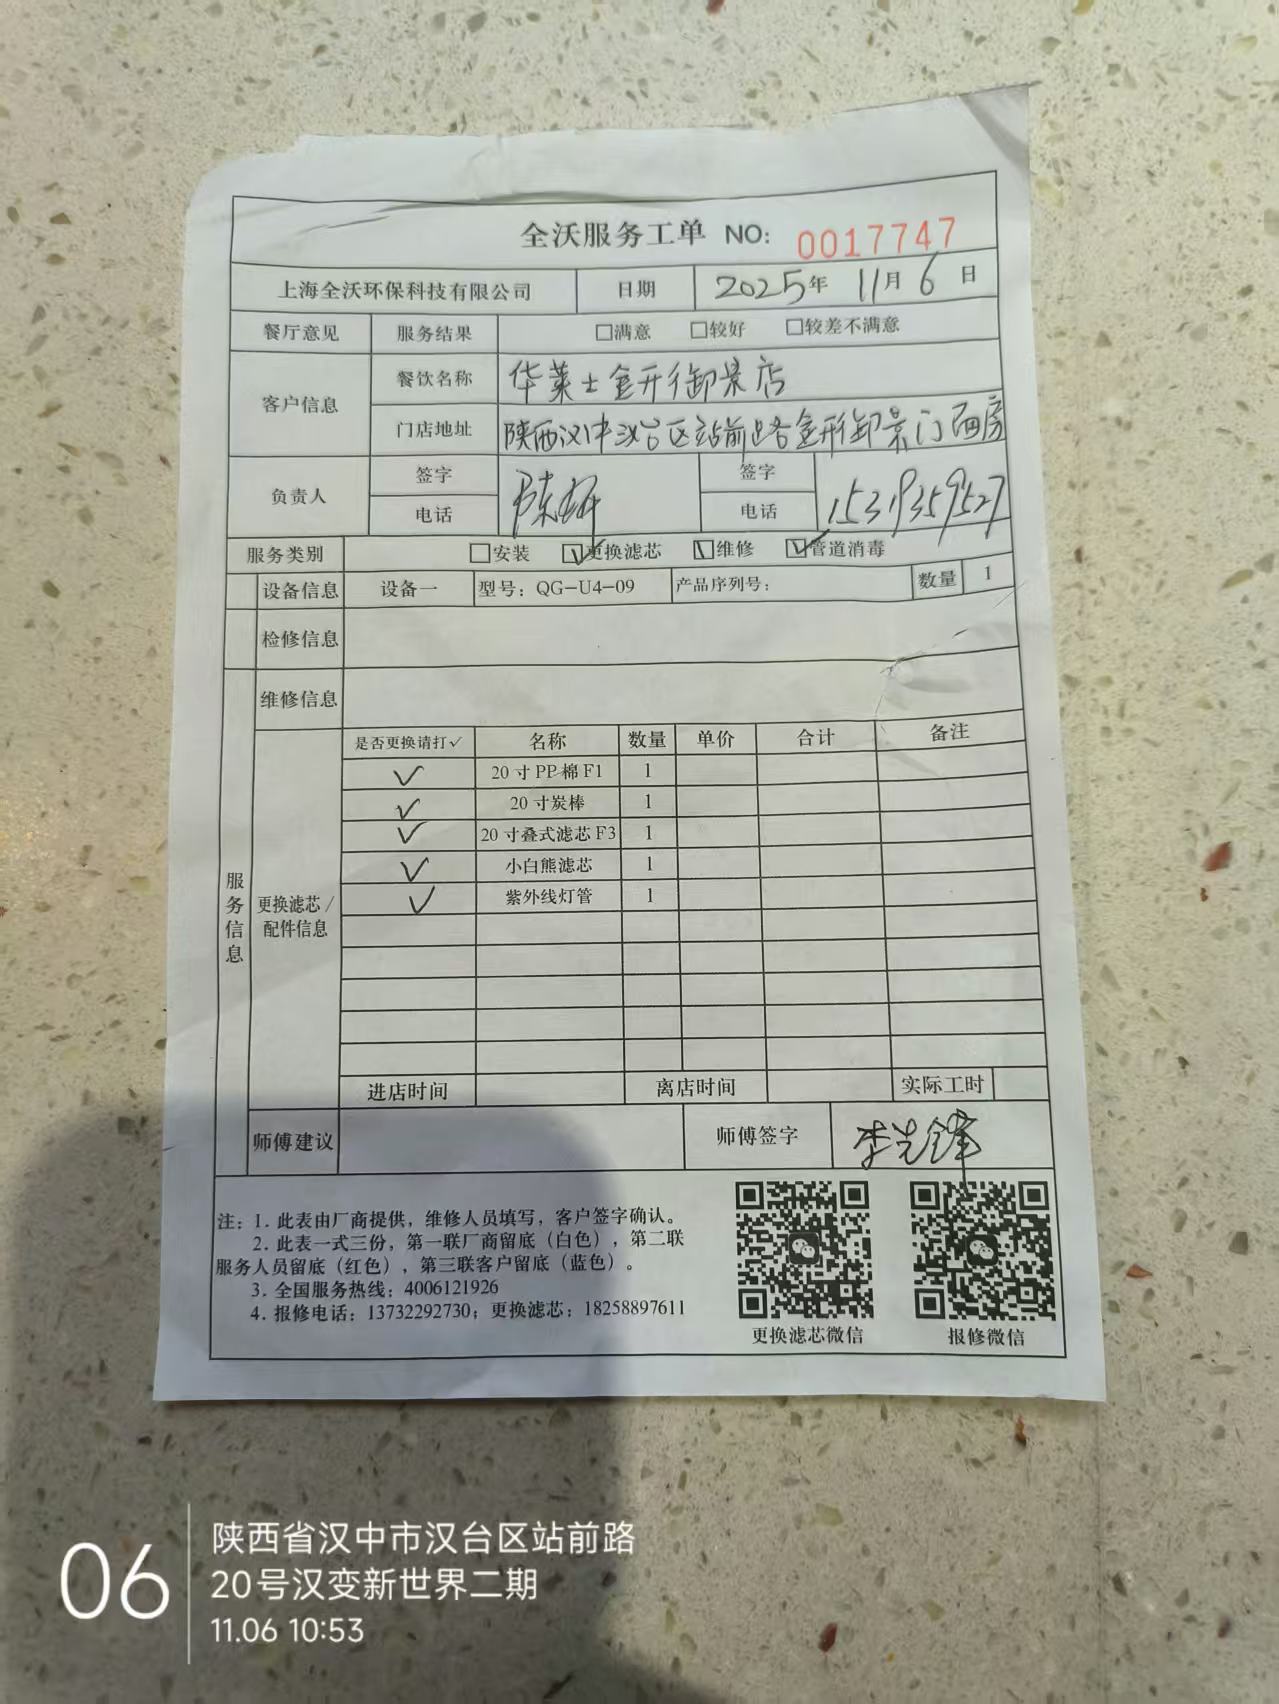 全沃服务工单 NO: 0017747
上海全沃环保科技有限公司 日期 2025年 11月 6日
餐厅意见 服务结果 □满意 □较好 □较差不满意
客户信息 餐饮名称 华莱士金形御景店
门店地址 陕西汉中汉台区站前路金形御景门面房
负责人 签字 陈妍 签字
电话 电话 15319359527
服务类别 □安装 ☑更换滤芯 ☑维修 ☑管道消毒
设备信息 设备一 型号: QG-U4-09 产品序列号: 数量 1
检修信息
维修信息
服务信息 更换滤芯/配件信息
是否更换请打✓ 名称 数量 单价 合计 备注
✓ 20寸PP棉F1 1
✓ 20寸炭棒 1
✓ 20寸叠式滤芯F3 1
✓ 小白熊滤芯 1
✓ 紫外线灯管 1
进店时间 离店时间 实际工时
师傅建议 师傅签字 李先锋
注: 1. 此表由厂商提供，维修人员填写，客户签字确认。
2. 此表一式三份，第一联厂商留底（白色），第二联
服务人员留底（红色），第三联客户留底（蓝色）。
3. 全国服务热线: 4006121926
4. 报修电话: 13732292730; 更换滤芯: 18258897611
更换滤芯微信 报修微信
06
陕西省汉中市汉台区站前路
20号汉变新世界二期
11.06 10:53